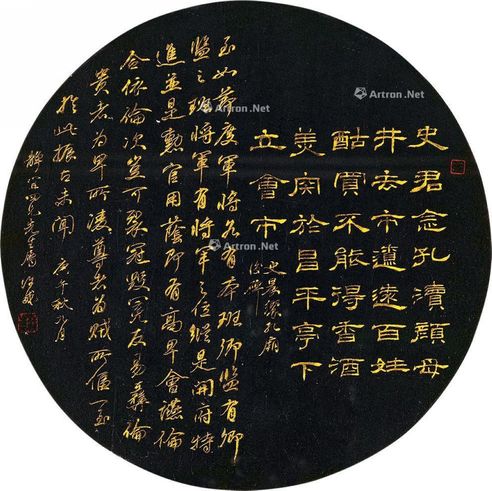 史君念孔瀆顏母
井去市遼遠百姓
酤買不能得香酒
美肉於昌平亭下
立會市
史晨饗孔廟
後碑
至如節度軍將各有本班卿監有卿
監之班將軍有將軍之位縱是開府特
進並是勳官用蔭即有高卑會讌倫
合依倫次豈可裂冠毀冕反易彝倫
貴者為卑所凌尊者為賊所偪一至
於此振古未聞 庚午秋九月
靜宜四兄先生屬
Artron.Net
Artron.Net
Artron.Net